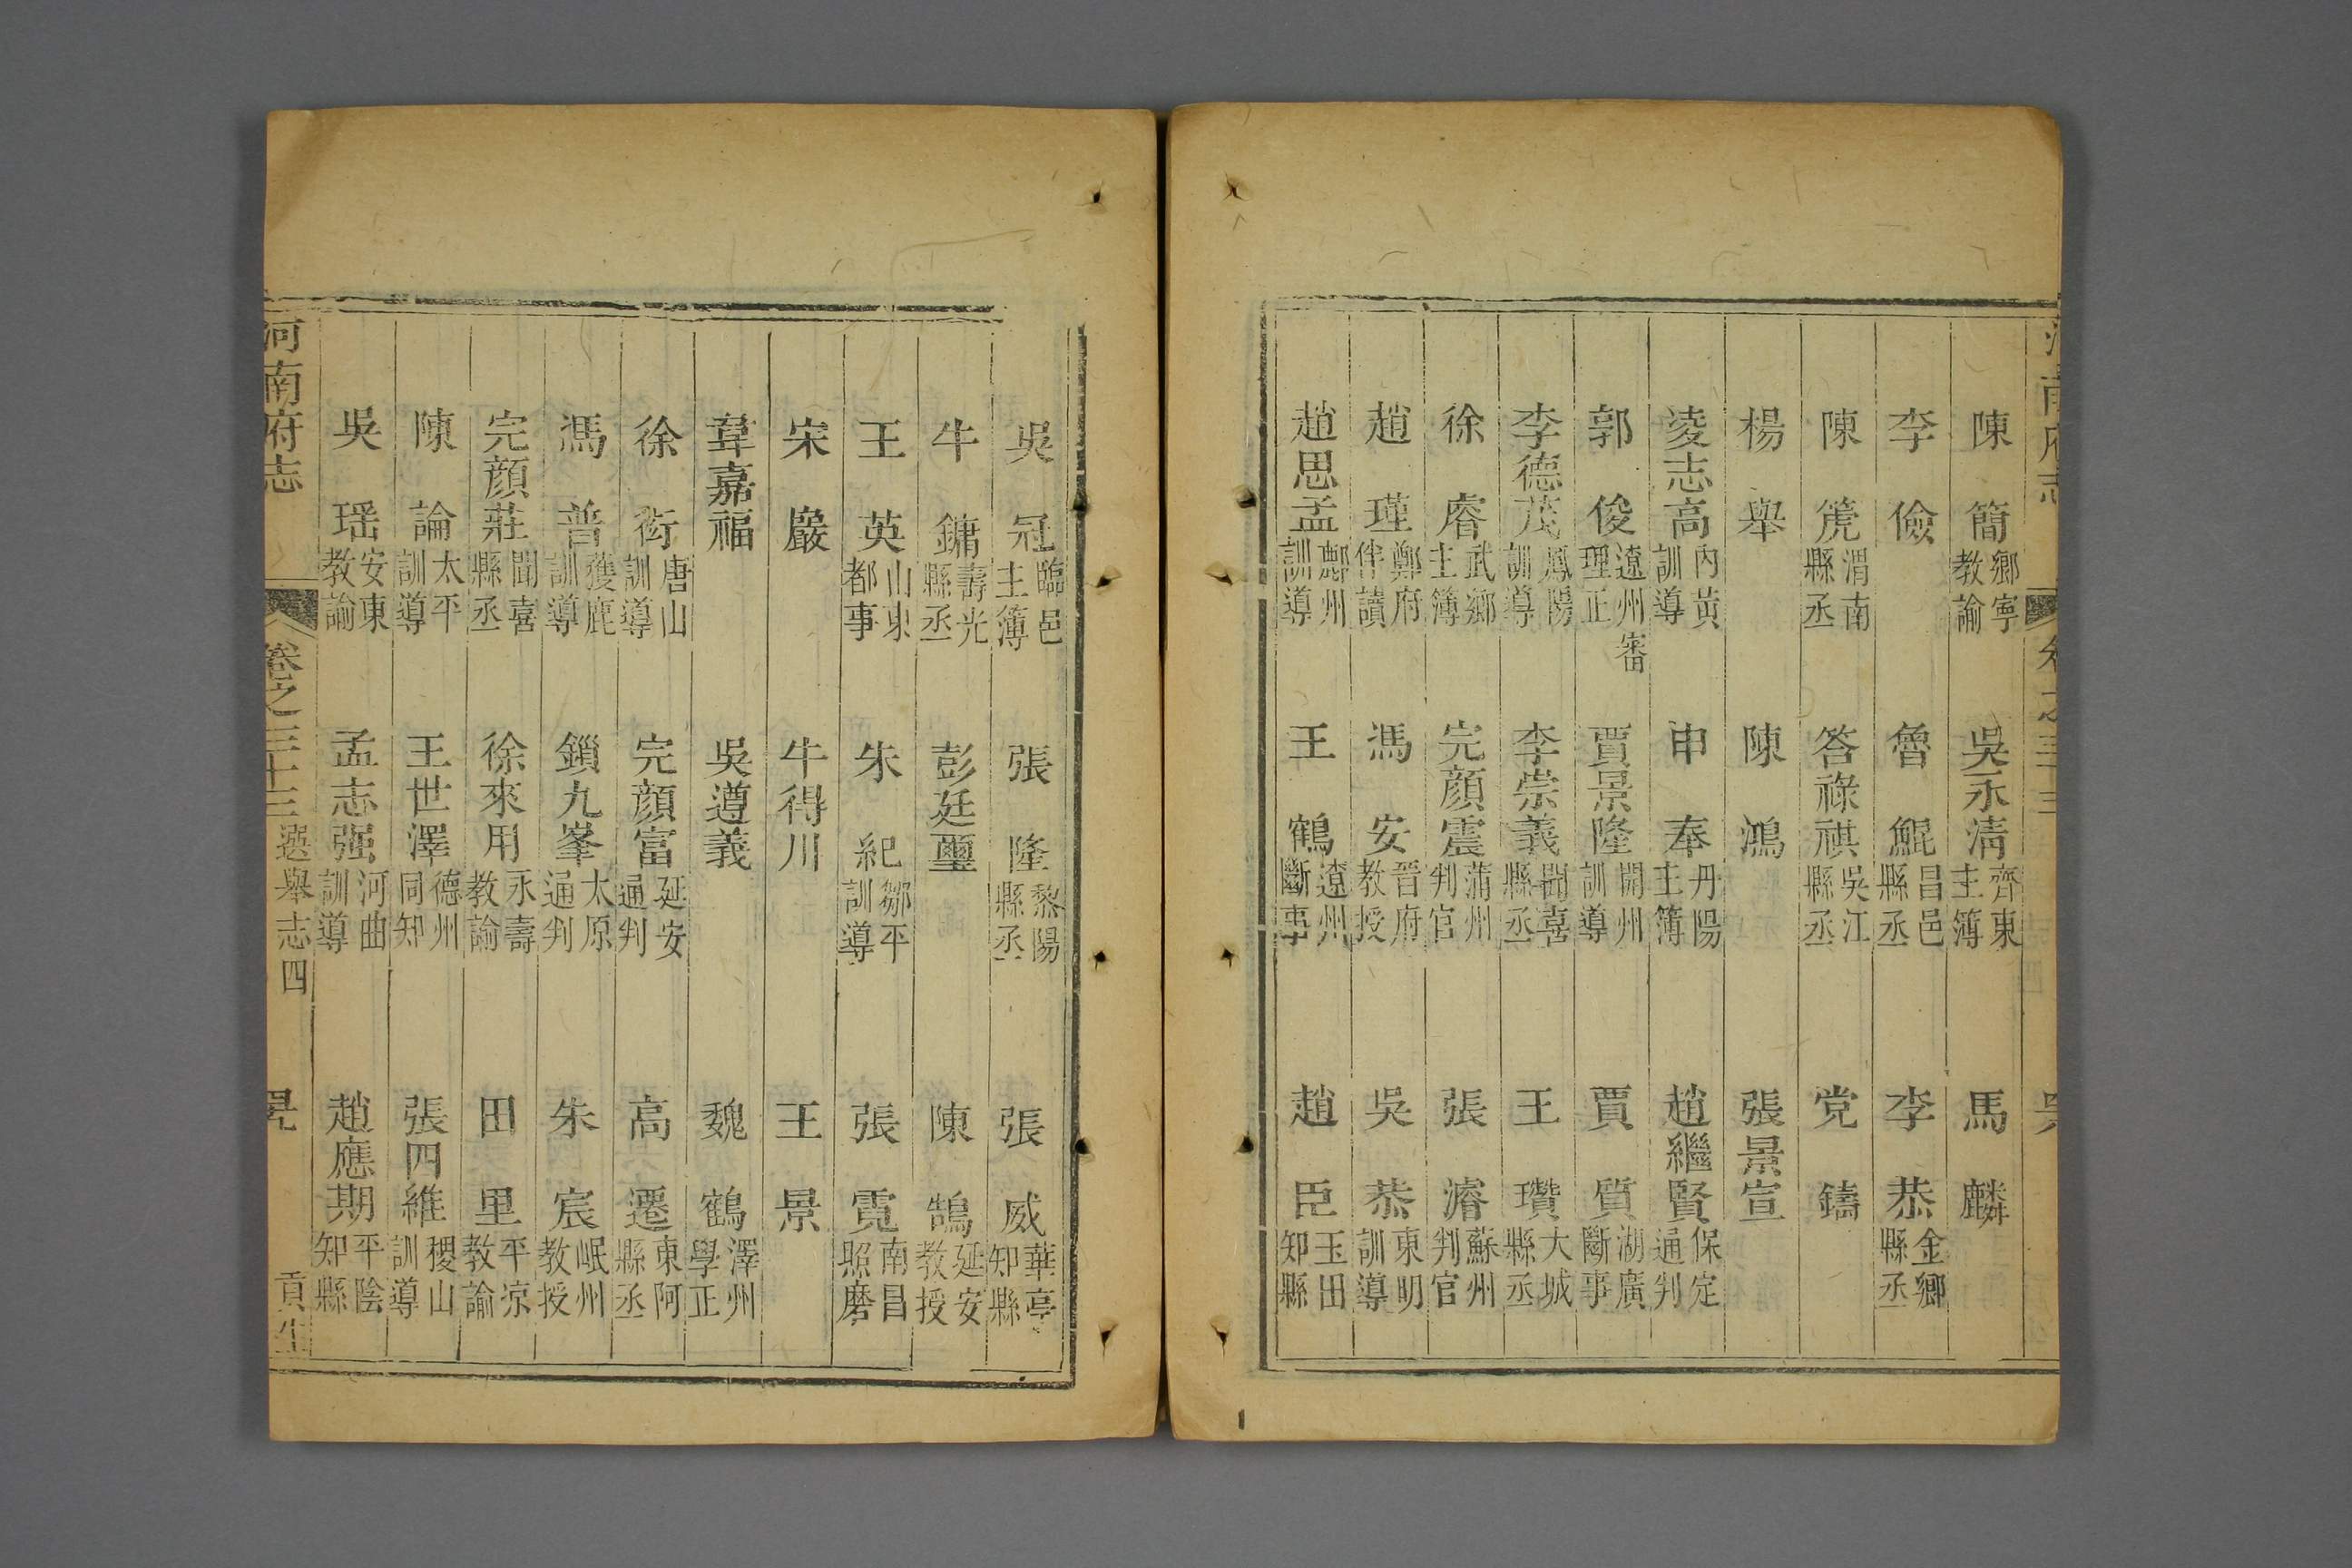 陳簡鄉寧教諭 吳永淸齊東主簿 馬麟
李儉 魯鯤昌邑縣丞 李恭金鄉縣丞
陳箎渭南縣丞 答祿祺吳江縣丞 党鑄
楊舉 陳鴻 張景宣
凌志高內黃訓導 申奉丹陽主簿 趙繼賢保定通判
郭俊遼州審理正 賈景隆開州訓導 賈質湖廣斷事
李德茂鳳陽訓導 李崇義聞喜縣丞 王瓚大城縣丞
徐睿武鄉主簿 完顏震蒲州判官 張濬蘇州判官
趙瑾鄭府伴讀 馮安晉府教授 吳恭東明訓導
趙思孟鄜州訓導 王鶴遼州斷事 趙臣玉田知縣
吳冠臨邑主簿 張隆黎陽縣丞 張威華亭知縣
牛鏞壽光縣丞 彭廷璽 陳鵠延安教授
王英山東都事 朱紀鄒平訓導 張霓南昌照磨
宋巖 牛得川 王景
韋嘉福 吳遵義 魏鶴澤州學正
徐銜唐山訓導 完顏富延安通判 高遷東阿縣丞
馮普獲鹿訓導 鎖九峯太原通判 朱宸岷州教授
完顏莊聞喜縣丞 徐來用永壽教諭 田里平涼教諭
陳論太平訓導 王世澤德州同知 張四維稷山訓導
吳瑶安東教諭 孟志强河曲訓導 趙應期平陰知縣
河南府志 卷之三十三 選舉志四 貢生